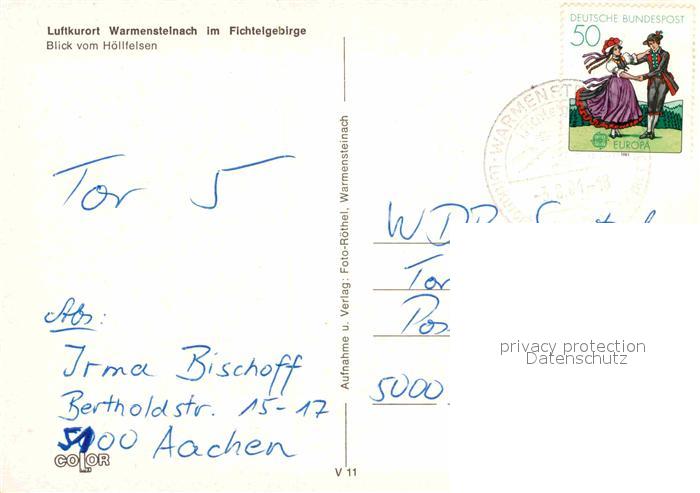 Luftkurort Warmensteinach im Fichtelgebirge
Blick vom Höllfelsen
Tor 5
Abs:
Irma Bischoff
Bertholdstr. 15-17
5100 Aachen
COLOR
Aufnahme u. Verlag: Foto-Röthel, Warmensteinach
V 11
DEUTSCHE BUNDESPOST
50
EUROPA
1981
WARMENST
WDR
Tor
Pos
5000
privacy protection
Datenschutz